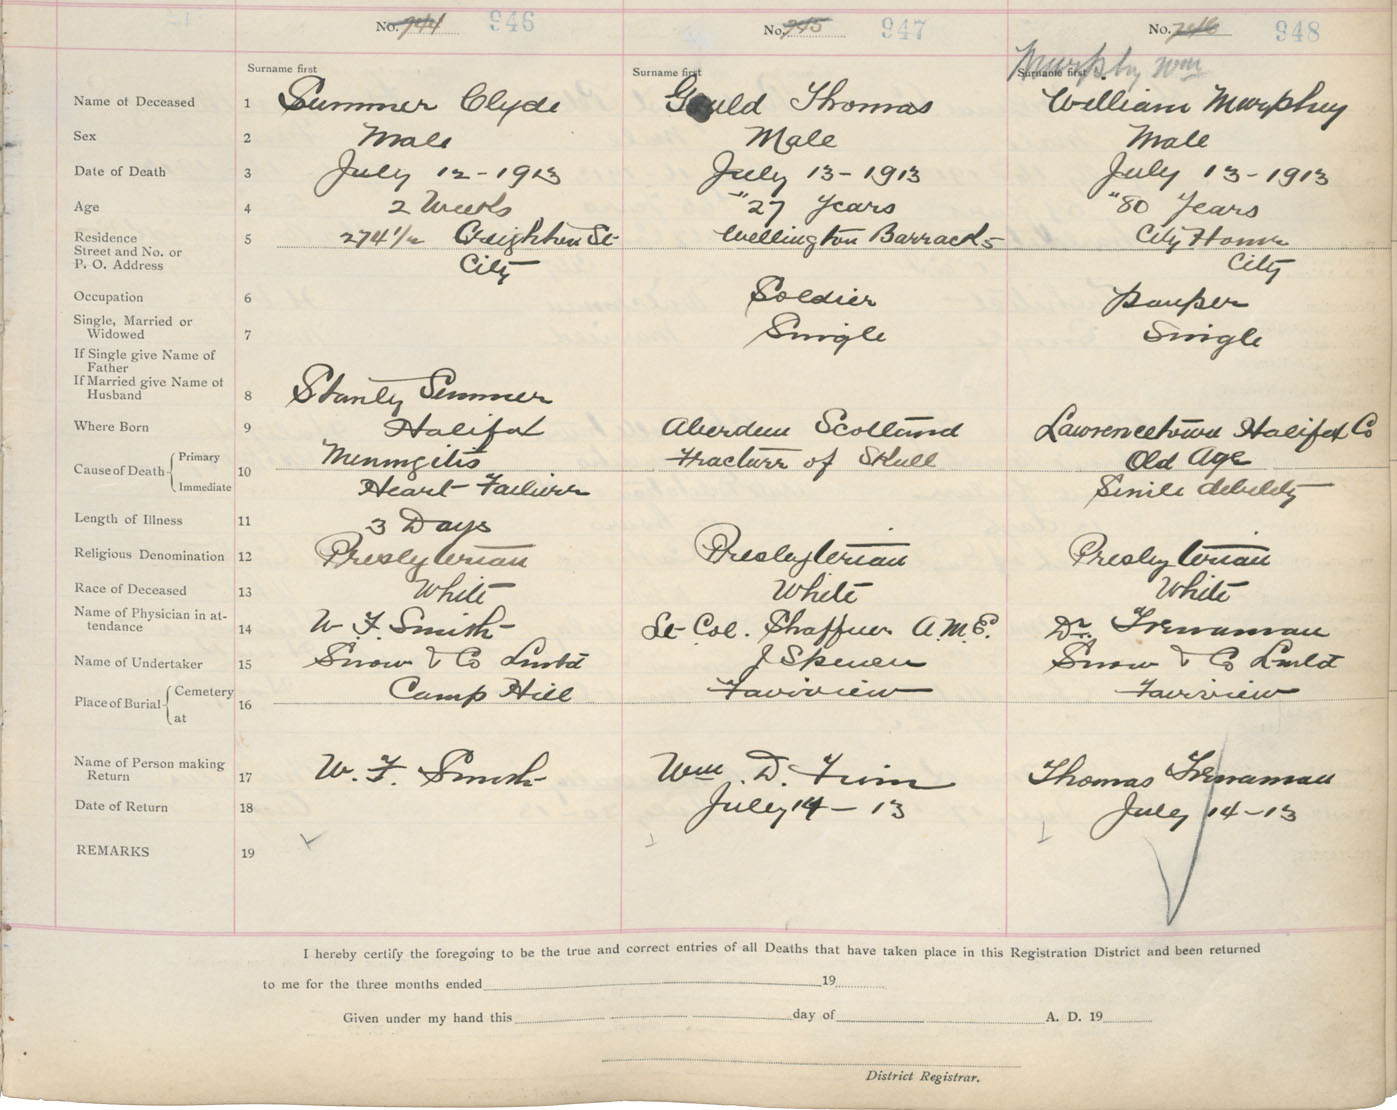 No. 744 946
No. 745 947
No. 746 948
Surname first
Surname first
Surname first
Murphy Wm
Name of Deceased 1 Summer Clyde Gould Thomas William Murphy
Sex 2 Male Male Male
Date of Death 3 July 12-1913 July 13-1913 July 13-1913
Age 4 2 Weeks "27 Years "80 Years
Residence 5 274 1/2 Creighton St Wellington Barracks City Home
Street and No. or
P. O. Address City City
Occupation 6 Soldier Pauper
Single, Married or
Widowed 7 Single Single
If Single give Name of
Father
If Married give Name of
Husband 8 Stanly Summer
Where Born 9 Halifax Aberdeen Scotland Lawrencetown Halifax Co
Cause of Death Primary 10 Meningitis Fracture of Skull Old Age
Immediate Heart Failure Senile debility
Length of Illness 11 3 Days
Religious Denomination 12 Presbyterian Presbyterian Presbyterian
Race of Deceased 13 White White White
Name of Physician in at-
tendance 14 W. F. Smith Lt Col. Shaffner A.M.C. Dr. Trenaman
Name of Undertaker 15 Snow & Co Lmtd J Spencer Snow & Co Lmtd
Place of Burial Cemetery Camp Hill Fairview Fairview
at 16
Name of Person making
Return 17 W. F. Smith Wm. D. Finn Thomas Trenaman
Date of Return 18 July 14-13 July 14-13
REMARKS 19
I hereby certify the foregoing to be the true and correct entries of all Deaths that have taken place in this Registration District and been returned
to me for the three months ended 19
Given under my hand this day of A. D. 19
District Registrar.